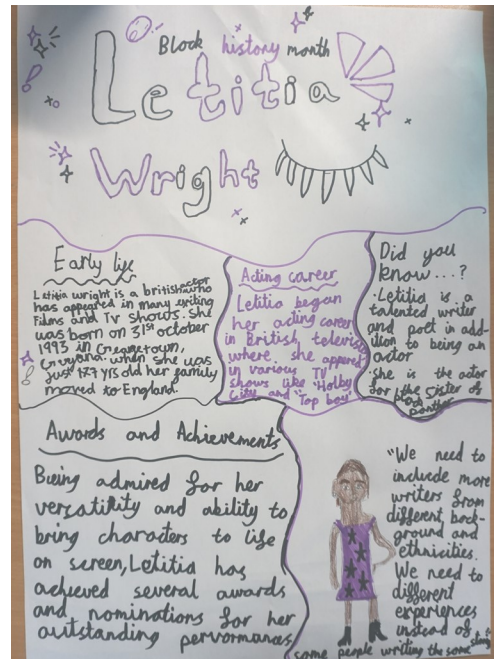 Black history month
Letitia
Wright
Early life
Letitia wright is a british actor who
has appeared in many exiting
Films and Tv shows. she
was born on 31st october
1993 in Georgetown,
Guyana. when she was
Just 7 yrs old her family
moved to England.
Acting career
Letitia began
her acting career
in British television
where. she appeared
in various TV
shows like "Holby
City and "Top boy"
Did you
know...?
·Letitia is a
talented writer
and poet in add-
ition to being an
actor
·she is the actor
for the sister of
black panther
Awards and Achievements
Being admired for her
versatility and ability to
bring characters to life
on screen, Letitia has
achieved several awards
and nominations for her
outstanding pervormances
"We need to
include more
writers from
different back-
ground and
ethnicities.
We need to
different
experiences
instead of
some people writing the same